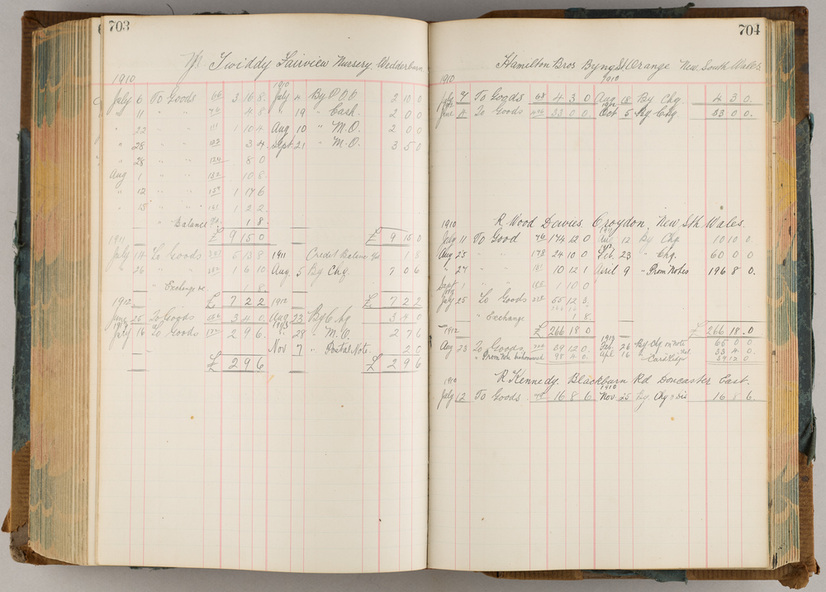 703
Twiddy Fairview Nursery Wedderburn
1910 1910
July 6 To Goods 3 16 8 July 4 By P.O.O. 2 10 0
" 11 " " 4 8 " 19 " Cash 2 0 0
" 22 " " 1 10 4 Aug 10 " M.O. 2 0 0
" 28 " " 3 4 Sept 21 " M.O. 3 5 0
" 28 " " 8 0
Aug 1 " " 10 8
" 12 " " 1 17 6
" 15 " " 1 2 2
" Balance 1 8
£ 9 15 0 £ 9 15 0
1911
July To Goods 1911 Credit Balance 1 8
" 26 " " 1 6 10 Aug 5 By Chq. 7 0 6
" Exchange 1 8
1912 £ 7 2 2 1912 £ 7 2 2
June 25 To Goods 3 4 0 Aug 23 By Chq 3 4 0
1913 1913
July 14 To Goods 2 9 6 " 28 " M.O. 2 7 6
Nov 7 " Postal Note 2 0
£ 2 9 6 £ 2 9 6
704
Hamilton Bros Byng St Orange New South Wales
1910 1910
July 7 To Goods 4 3 0 Aug 18 By Chq. 4 3 0
June To Goods 33 0 0 Oct 5 By Chq 33 0 0
1910 R. Wood Davies Croydon, New Sth Wales.
July 11 To Good 174 12 0 12 By Chq 10 10 0
Aug 23 " " 24 10 0 Feb. 23 " Chq. 60 0 0
" 27 " " 10 12 1 April 9 " Prom Notes 196 8 0
Sept 1 " " 1 10 0
July 25 To Goods 55 12 3
" Exchange 1 8
1912 £ 266 18 0 £ 266 18 0
Aug 23 To Goods
1910 R Kennedy. Blackburn Rd Doncaster East.
1910
July 12 To Goods 16 8 6 Nov 25 By Chq 16 8 6